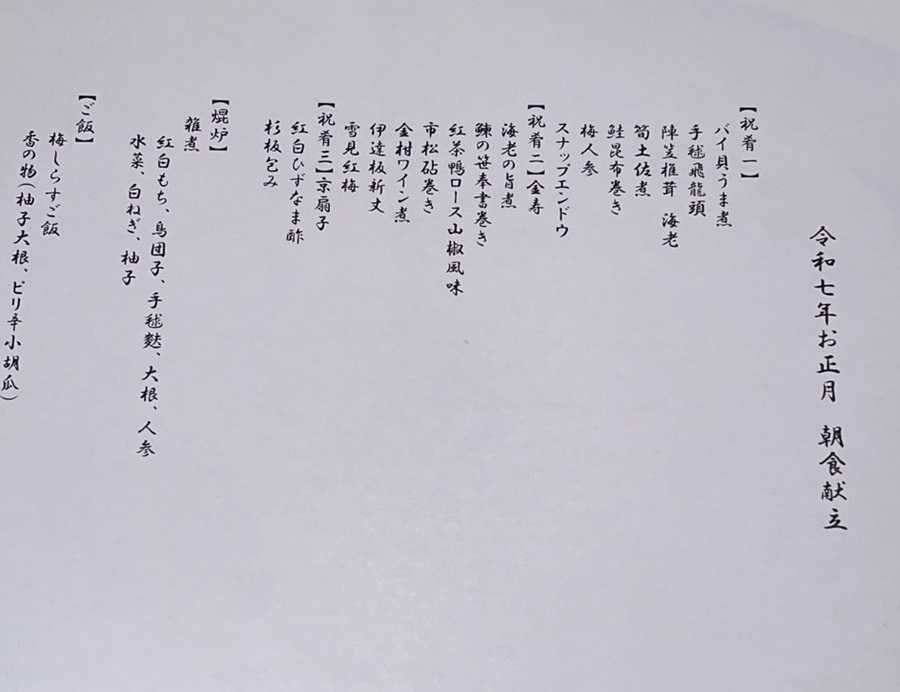 令和七年お正月　朝食献立
【祝肴一】
バイ貝うま煮
手毬飛龍頭
陣笠椎茸　海老
筍土佐煮
鮭昆布巻き
梅人参
スナップエンドウ
【祝肴二】金寿
海老の旨煮
鰊の笹奉書巻き
紅茶鴨ロース山椒風味
市松砧巻き
金柑ワイン煮
伊達板新丈
雪見紅梅
【祝肴三】京扇子
紅白ひずなま酢
杉板包み
【焜炉】
雑煮
紅白もち、鳥団子、手毬麩、大根、人参
水菜、白ねぎ、柚子
【ご飯】
梅しらすご飯
香の物（柚子大根、ピリ辛小胡瓜）